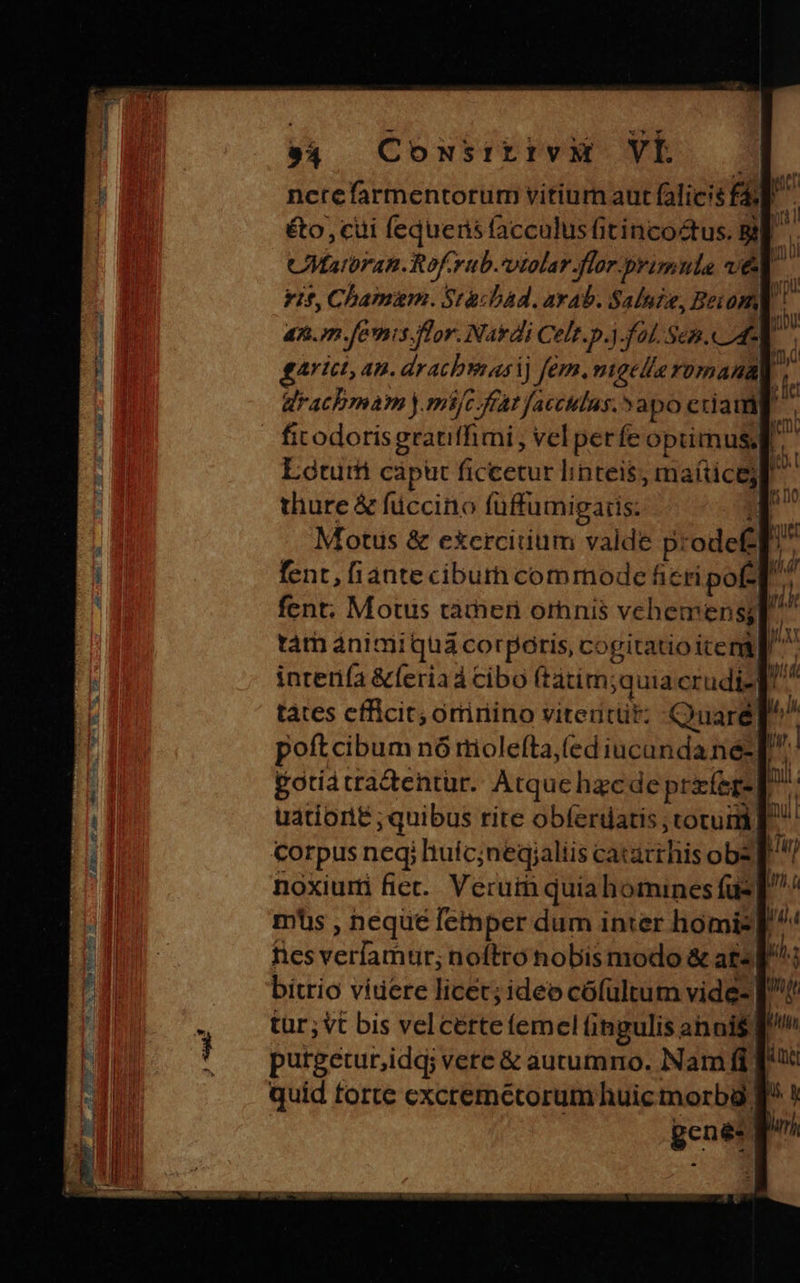 94 CONSILIVM VI.
nere sarmentorum vitium aut salicis fa-
cto, cui sequens sacculus sit incoctus. ℞
Maioran. Ros. rub. violar. flor. primulæ ve-
ris, Chamæm. Stœchad. arab. Saluiæ, Beton.
an. m. semis. flor. Nardi Celt. p. j. fol. Sen. A-
garici, an. drachmas ij sem. nigellæ romanæ
drachmam j. misc. fiat sacculus. Sapo etiam
sit odoris gratissimi, vel per se optimus.
Lotum caput siccetur linteis, mastice,
thure & succino suffumigatis.
Motus & exercitium valde prodes-
sent, si ante cibum commode fieri pos-
sent. Motus tamen omnis vehemens,
tàm animi quã corporis, cogitatio item
intensa & seria à cibo statim, quia crudi-
tates efficit, omnino vitentur. Quare
post cibum nõ molesta, sed iucunda ne-
gotia tractentur. Atque hæc de præser-
uatione; quibus rite obseruatis, totum
corpus neq; huic, neq; aliis catarrhis ob-
noxium fiet. Verum quia homines su-
mus, neque semper dum inter homi-
nes versamur, nostro nobis modo & ar-
bitrio viuere licet; ideo cõsultum vide-
tur, vt bis vel certe semel singulis annis
purgetur, idq; vere & autumno. Nam si
quid forte excremẽtorum huic morbo
gene-